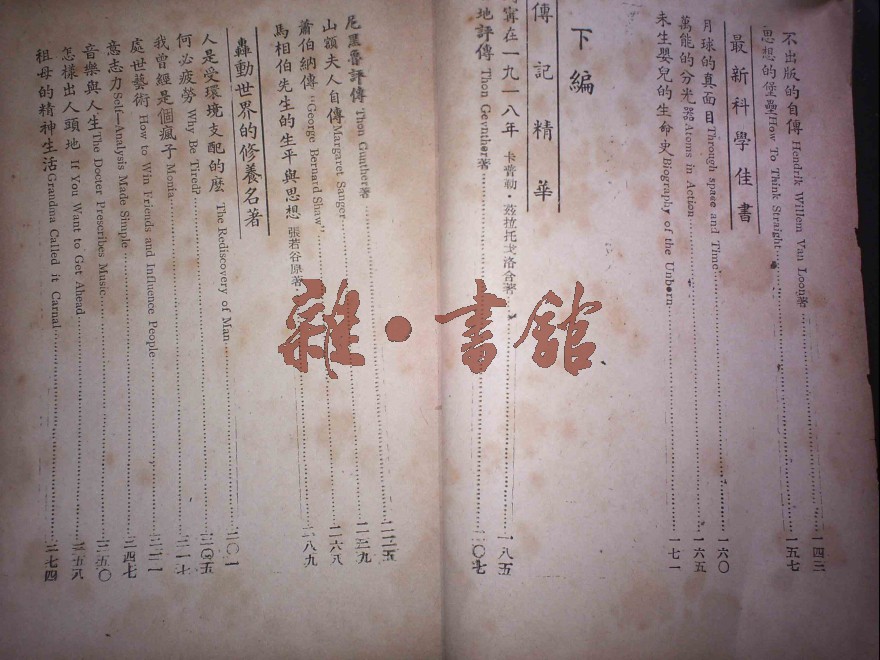 不出版的自傳 Hendrik Willem Van Loon著 一四三
思想的堡壘 How To Think Straight 一五七
最新科學佳書
月球的真面目 Through spase and Time 一六〇
萬能的分光器 Atoms in Action 一六五
未生嬰兒的生命史 Biography of the Unborn 一七一
下編
傳記精華
寗在一九一八年 卡普勒·茲拉托戈洛合著 一八五
地評傳 Thon Gevnther著
尼黑魯評傳 Thon Gunther著
山額夫人自傳 Margaret Sanger
蕭伯納傳 "George Bernard Shaw"
馬相伯先生的生平與思想 張若谷原著
轟動世界的修養名著
人是受環境支配的麼 The Rediscovery of Man
何必疲勞 Why Be Tired?
我曾經是個瘋子 Monia
處世藝術 How to Win Friends and Influence People
意志力 Self—Analysis Made Simple
音樂與人生 The Docter Prescribes Music
怎樣出人頭地 If You Want to Get Ahead
祖母的精神生活 Grandma Called it Carnal
雜·書館